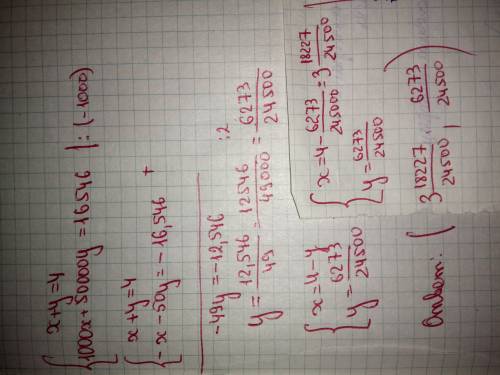 x+y=4
1000x+50000y=16546 |:(-1000)
x+y=4
-x-50y=-16,546 +
-49y=-12,546
:2
y=12,546/49=12546/49000=6273/24500
x=4-y
y=6273/24500
x=4-6273/245000=3 18227/24500
y=6273/24500
Ответ: (3 18227/24500 | 6273/24500)